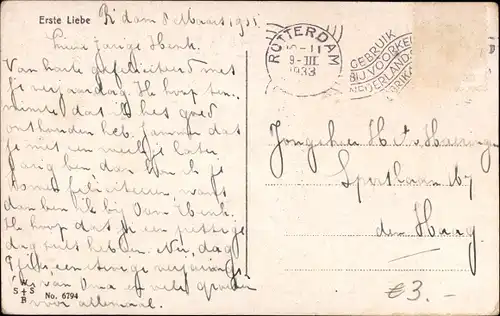 Erste Liebe
R'dam 8 Maart 1933
Lieve jonge Henk.
Van harte gefeliciteerd met
je verjaardag. Ik hoop ten
minste dat ik het goed
onthouden heb. Jammer dat
je niet een week je later
jarig ben dan kon ik je
komen feliciteeren want
dan ben ik bij Oom Henk.
Ik hoop dat je een prettige
dag zult hebben. Nu, dag
een stevige verjaardags
van Oma en veel groeten
voor allemaal.
ROTTERDAM
9-III
1933
GEBRUIK
BIJ VOORKEUR
NEDERLANDSCH
FABRIKAAT
Jongeheer H. v.
Sportlaan
den Haag
€3.-
W
S S
B
No. 6794